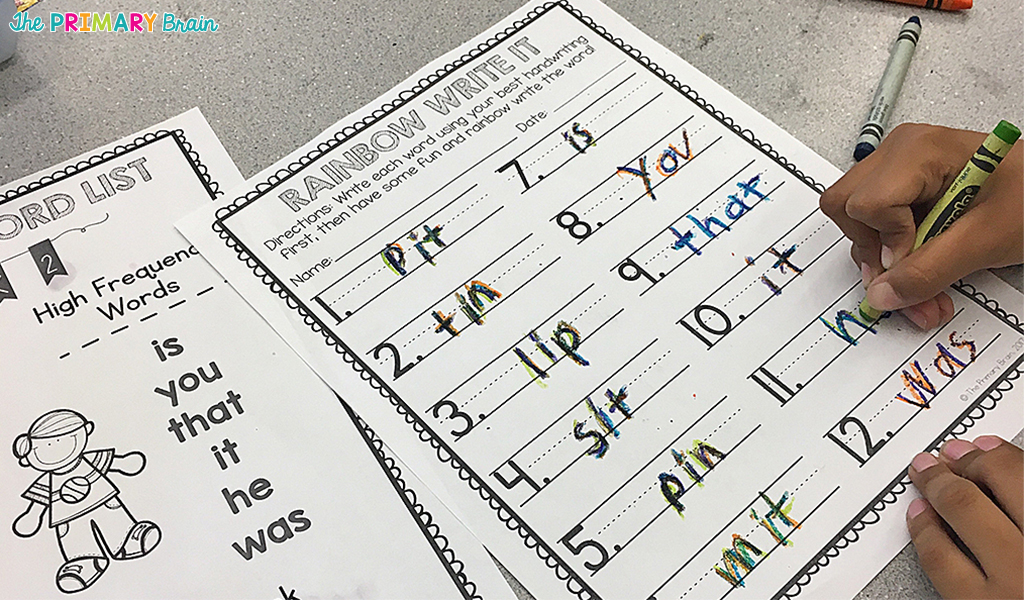 The PRIMARY Brain
ORD LIST
2
High Frequenc
Words
is
you
that
it
he
was
k
RAINBOW WRITE IT
Directions: Write each word using your best handwriting
first, then have some fun and rainbow write the word!
Name: Date:
1. pit
2. tin
3. lip
4. sit
5. pin
mit
7. is
8. You
9. that
10. it
11. h
12. was
© The Primary Brain